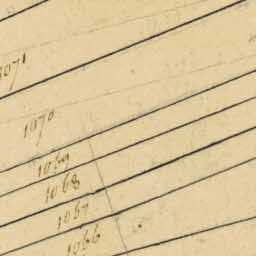 1071
1070
1069
1068
1067
1066